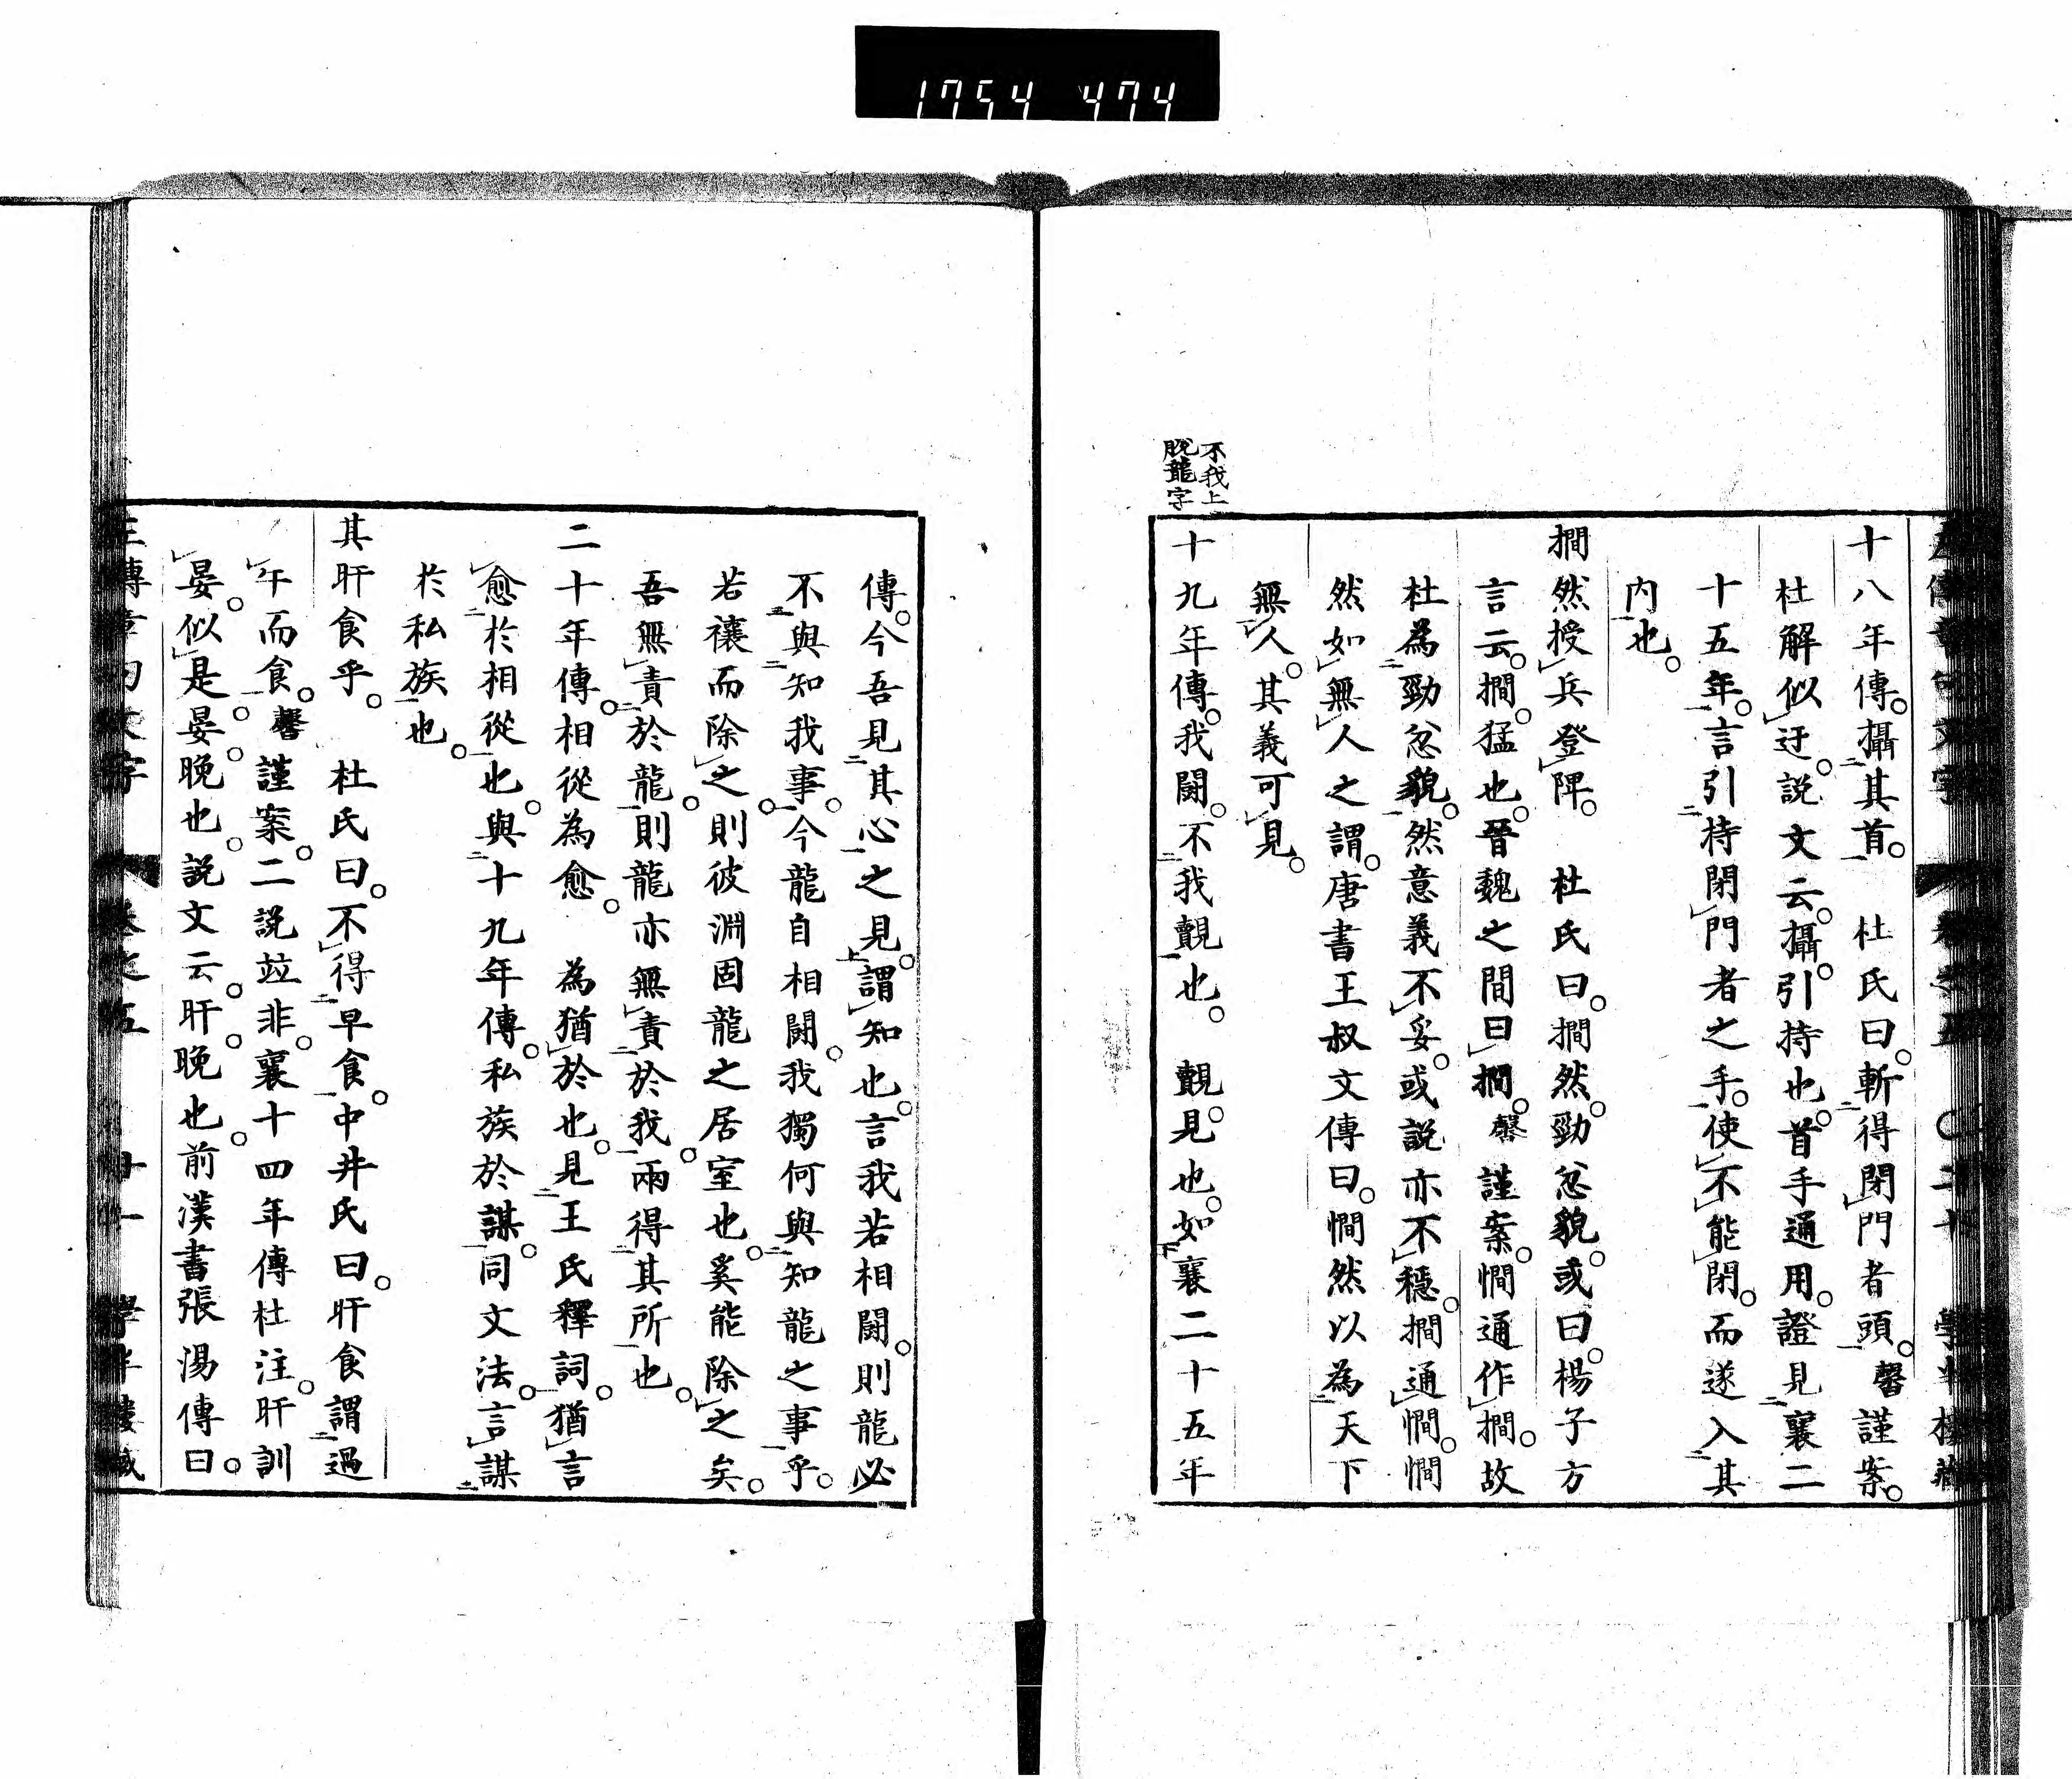 1754 474
十八年傳。攝其首。　杜氏曰。斬得閉門者頭。馨謹案。
杜解似迂。説文云。攝。引持也。首手通用。證見襄二
十五年。言引持閉門者之手。使不能閉。而遂入其
内也。
撊然授兵登陴。　杜氏曰。撊然。勁忿貌。或曰。楊子方
言云。撊。猛也。晉魏之間曰撊。馨謹案。憪通作撊。故
杜為勁忿貌。然意義不妥。或説亦不穩。撊通憪。憪
然如無人之謂。唐書王叔文傳曰。憪然以為天下
無人。其義可見。
不我上
脱龍字
十九年傳。我鬬。不我覿也。　覿。見也。如襄二十五年
傳。今吾見其心之見。謂知也。言我若相鬬。則龍必
不與知我事。今龍自相鬬。我獨何與知龍之事乎。
若禳而除之。則彼淵固龍之居室也。奚能除之矣。
吾無責於龍。則龍亦無責於我。兩得其所也。
二十年傳。相從為愈。　為猶於也。見王氏釋詞。猶言
愈於相從也。與十九年傳。私族於謀。同文法。言謀
於私族也。
其旰食乎。　杜氏曰。不得早食。中井氏曰。旰食謂過
午而食。馨謹案。二説竝非。襄十四年傳杜注。旰訓
晏。似是。晏。晚也。説文云。旰。晚也。前漢書張湯傳曰。
左傳章句文字　卷之五　廿一　學半樓藏